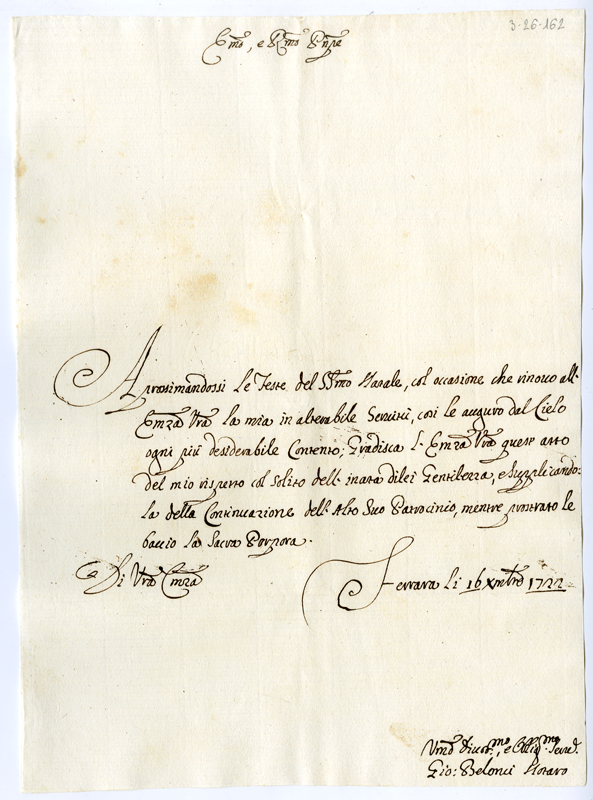 3-26-162
Emo, e Rmo Pnpe
Aprossimandossi le Feste del SSmo Natale, col occasione che rinovo all'
Emza Vra la mia inalterabile Servitù, così le auguro dal Cielo
ogni più desiderabile Contento; Gradisca l'Emza Vra quest atto
del mio rispetto col solito dell'inata di lei Gentilezza, e supplicando=
la della Continuazione dell'Alto Suo Patrocinio, mentre prostrato le
baccio la Sacra Porpora.
Di Vra Emza
Ferrara li 16 Xmbre 1722
Umo Divotmo, e Obligmo Serve.
Gio: Belonci Notaro